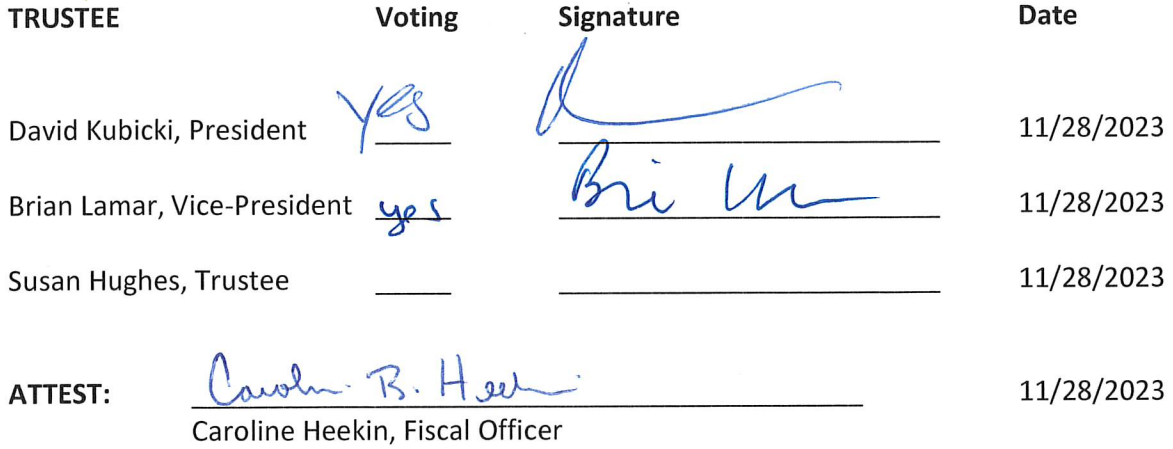 TRUSTEE Voting Signature Date
David Kubicki, President Yes 11/28/2023
Brian Lamar, Vice-President yes Bri 11/28/2023
Susan Hughes, Trustee 11/28/2023
ATTEST: Carolin B. Heekin 11/28/2023
Caroline Heekin, Fiscal Officer